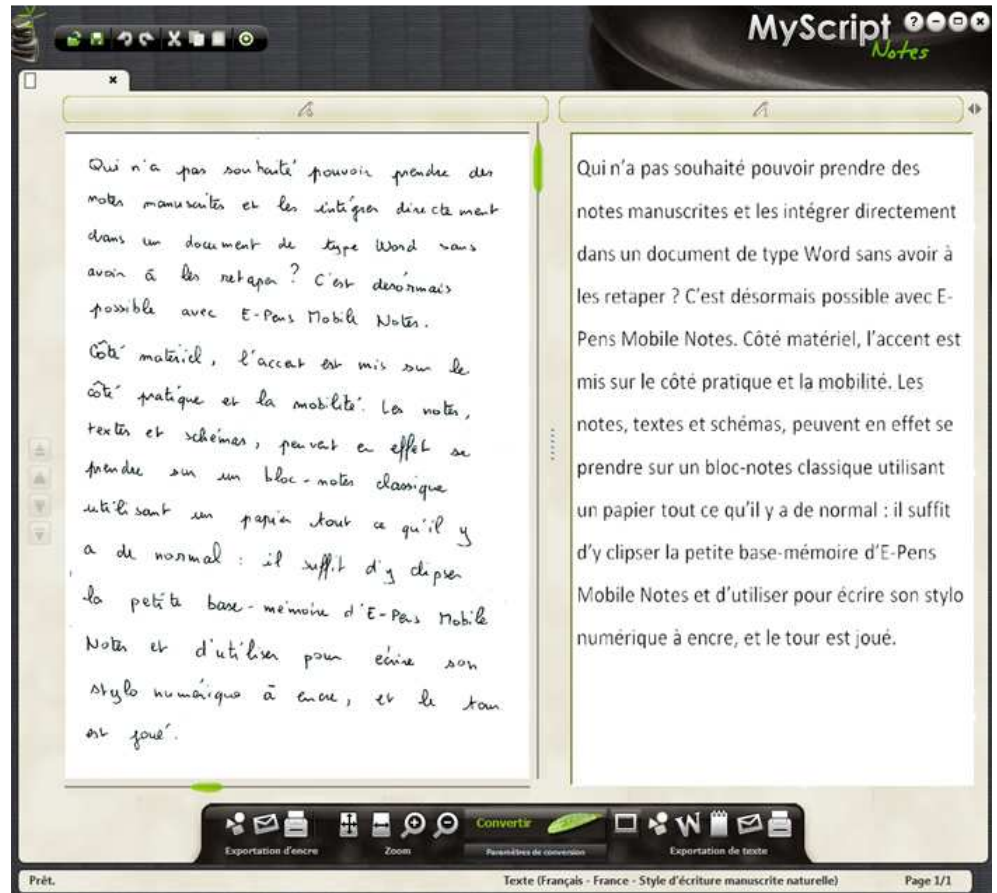 MyScript
Notes
Qui n'a pas souhaité pouvoir prendre des
notes manuscrites et les intégrer directement
dans un document de type Word sans
avoir à les retaper ? C'est désormais
possible avec E-Pens Mobile Notes.
Côté matériel, l'accent est mis sur le
côté pratique et la mobilité. Les notes,
textes et schémas, peuvent en effet se
prendre sur un bloc-notes classique
utilisant un papier tout ce qu'il y
a de normal : il suffit d'y clipser
la petite base-mémoire d'E-Pens Mobile
Notes et d'utiliser pour écrire son
stylo numérique à encre, et le tour
est joué.
Qui n'a pas souhaité pouvoir prendre des
notes manuscrites et les intégrer directement
dans un document de type Word sans avoir à
les retaper ? C'est désormais possible avec E-
Pens Mobile Notes. Côté matériel, l'accent est
mis sur le côté pratique et la mobilité. Les
notes, textes et schémas, peuvent en effet se
prendre sur un bloc-notes classique utilisant
un papier tout ce qu'il y a de normal : il suffit
d'y clipser la petite base-mémoire d'E-Pens
Mobile Notes et d'utiliser pour écrire son stylo
numérique à encre, et le tour est joué.
Convertir
Exportation d'encre Zoom Paramètres de conversion Exportation de texte
Prêt. Texte (Français - France - Style d'écriture manuscrite naturelle) Page 1/1